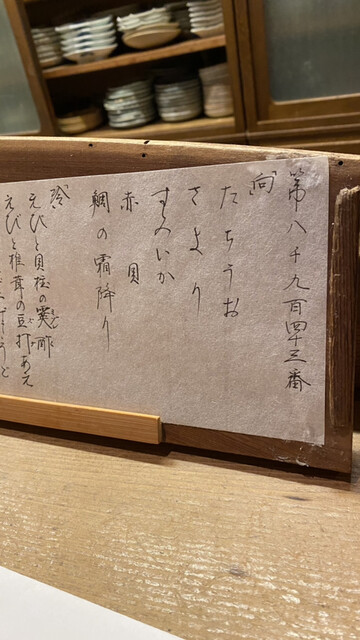 第八千九百四十三番
向
たちうお
さより
すみいか
赤貝
鯛の霜降り
冷
えびと貝柱の霙酢
えびと椎茸の豆打あえ